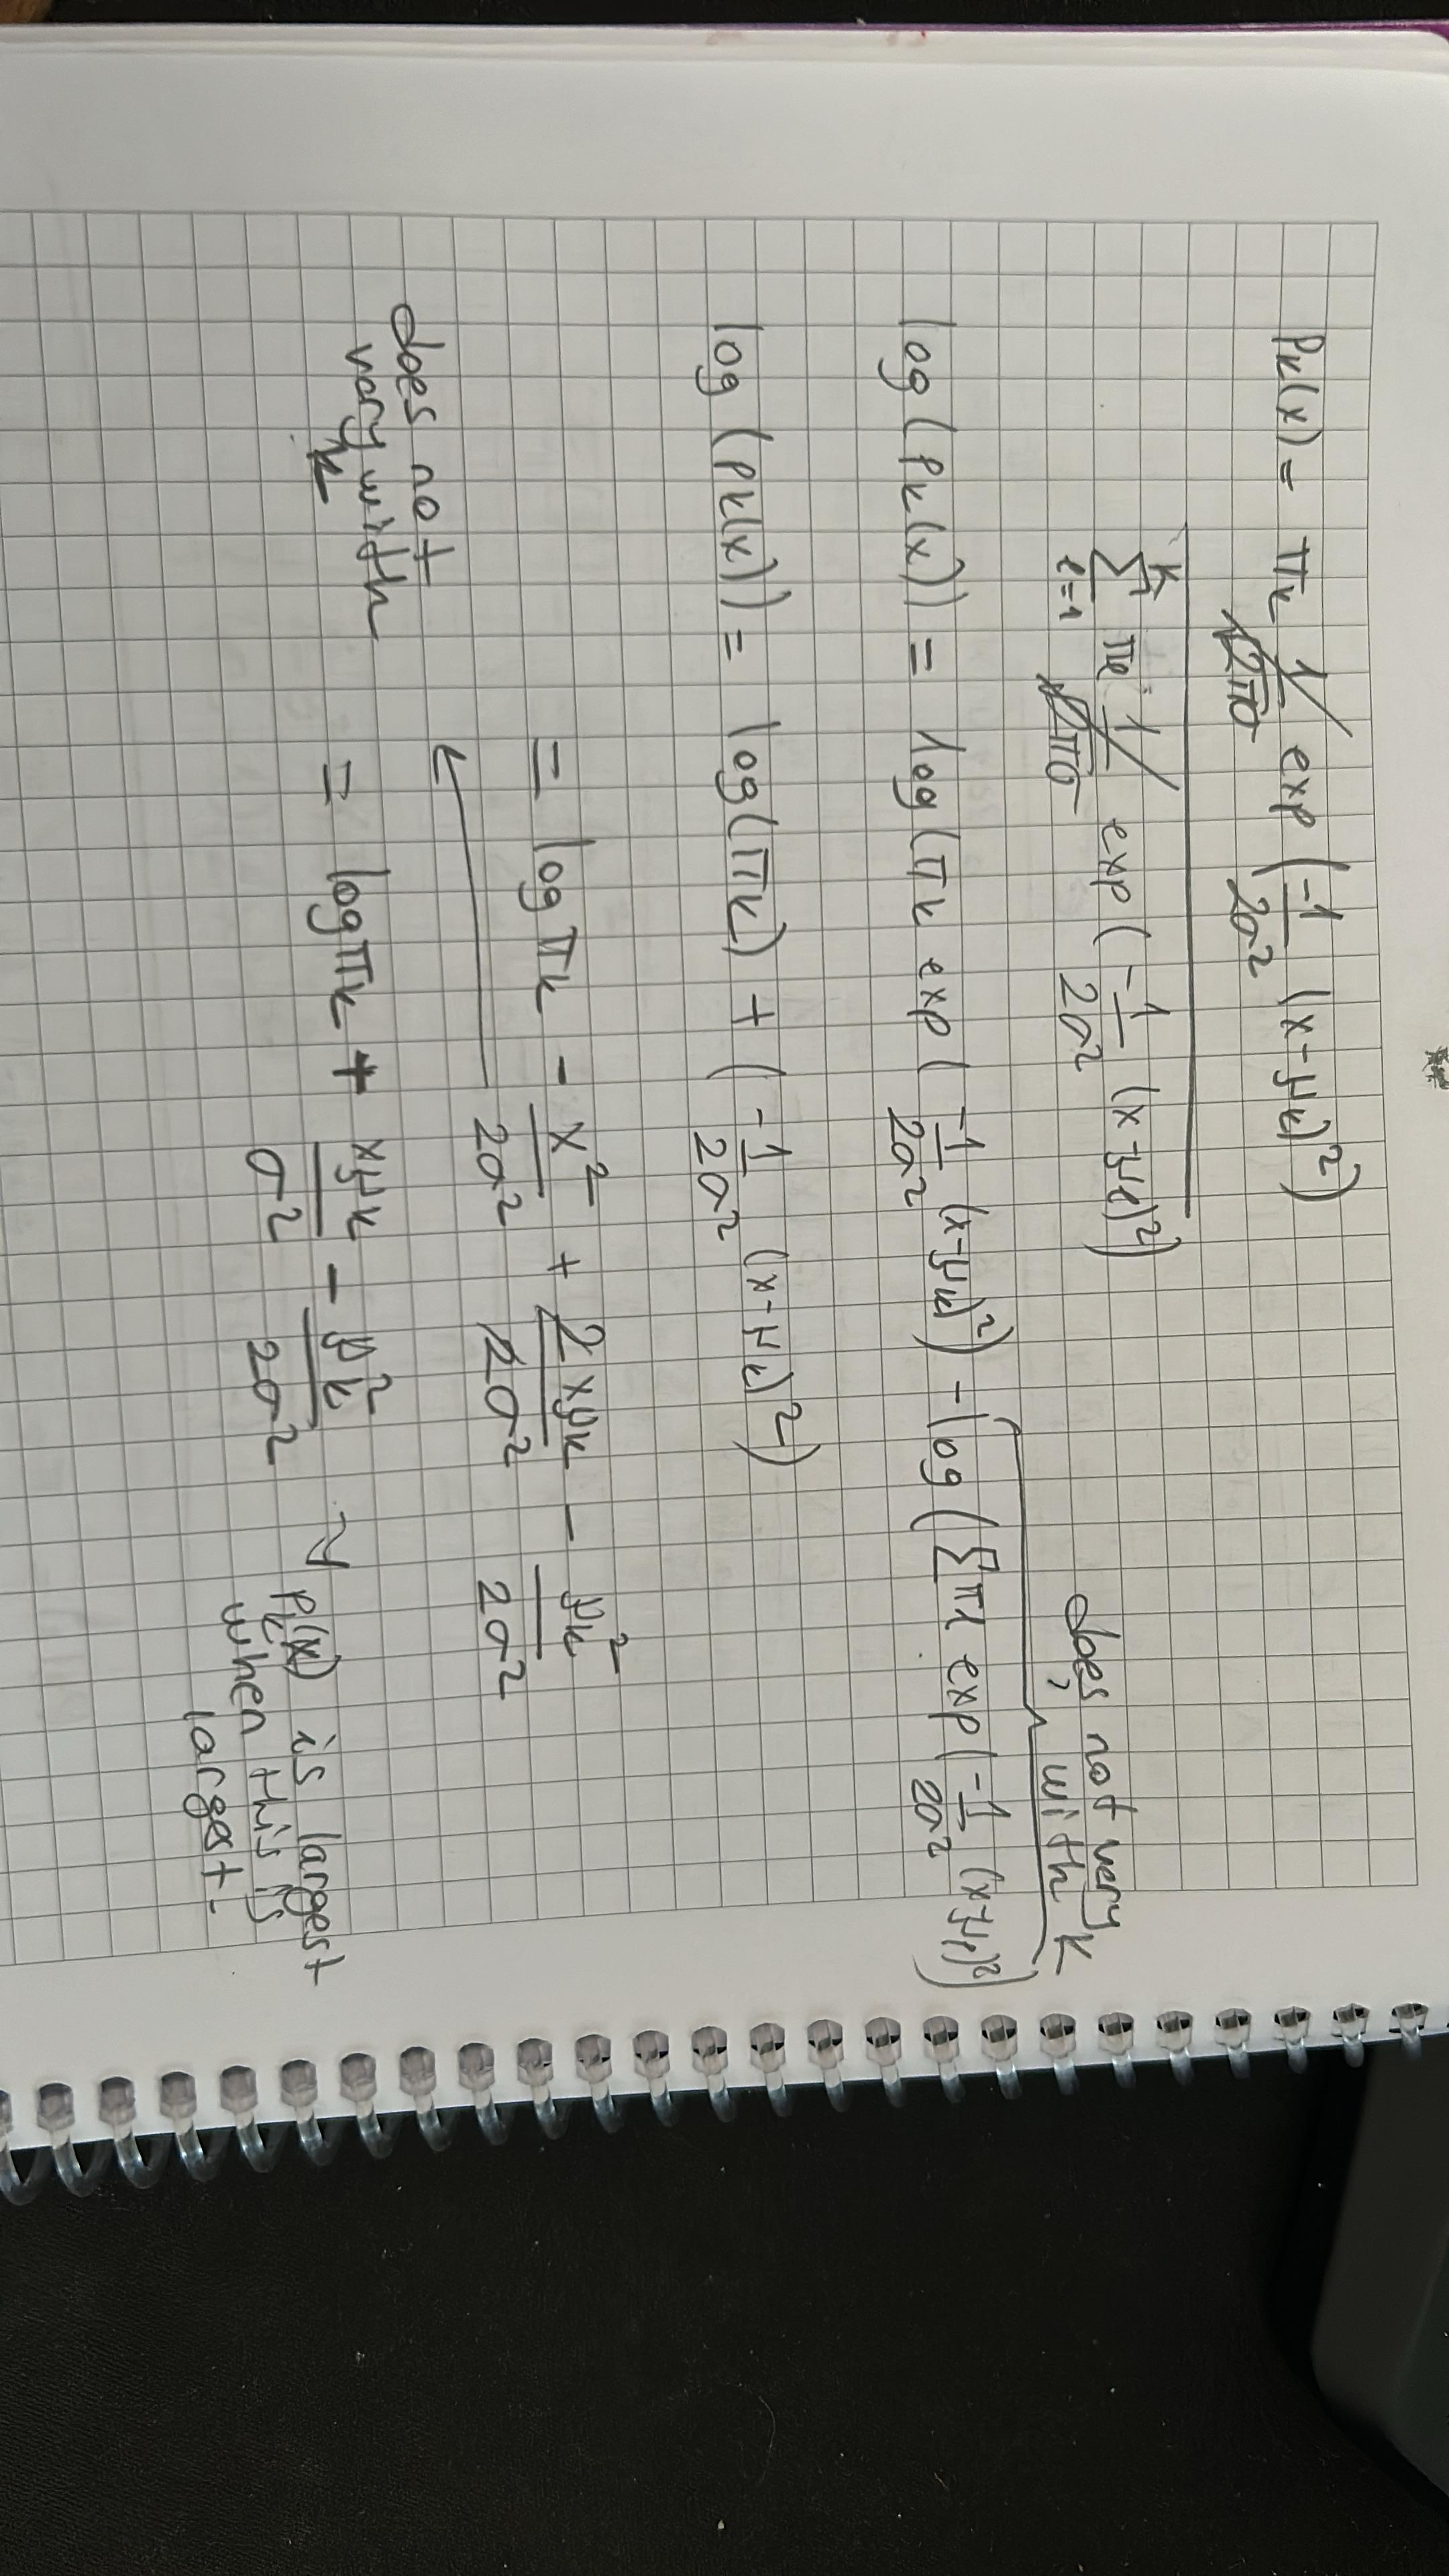 Pk(x) = πk 1/√2πσ exp (-1/2σ² (x-μk)²)
K Σ l=1 πl 1/√2πσ exp (-1/2σ² (x-μl)²)
does not very
with K
log (Pk(x)) = log(πk exp( -1/2σ² (x-μk)²) - log (Σ πl exp(-1/2σ² (x-μl)²)
log (Pk(x)) = log(πk) + (-1/2σ² (x-μk)²)
= log πk - x²/2σ² + 2xμk/2σ² - μk²/2σ²
does not
very with
k
= log πk + xμk/σ² - μk²/2σ²
Pk(x) is largest
when this is
largest.